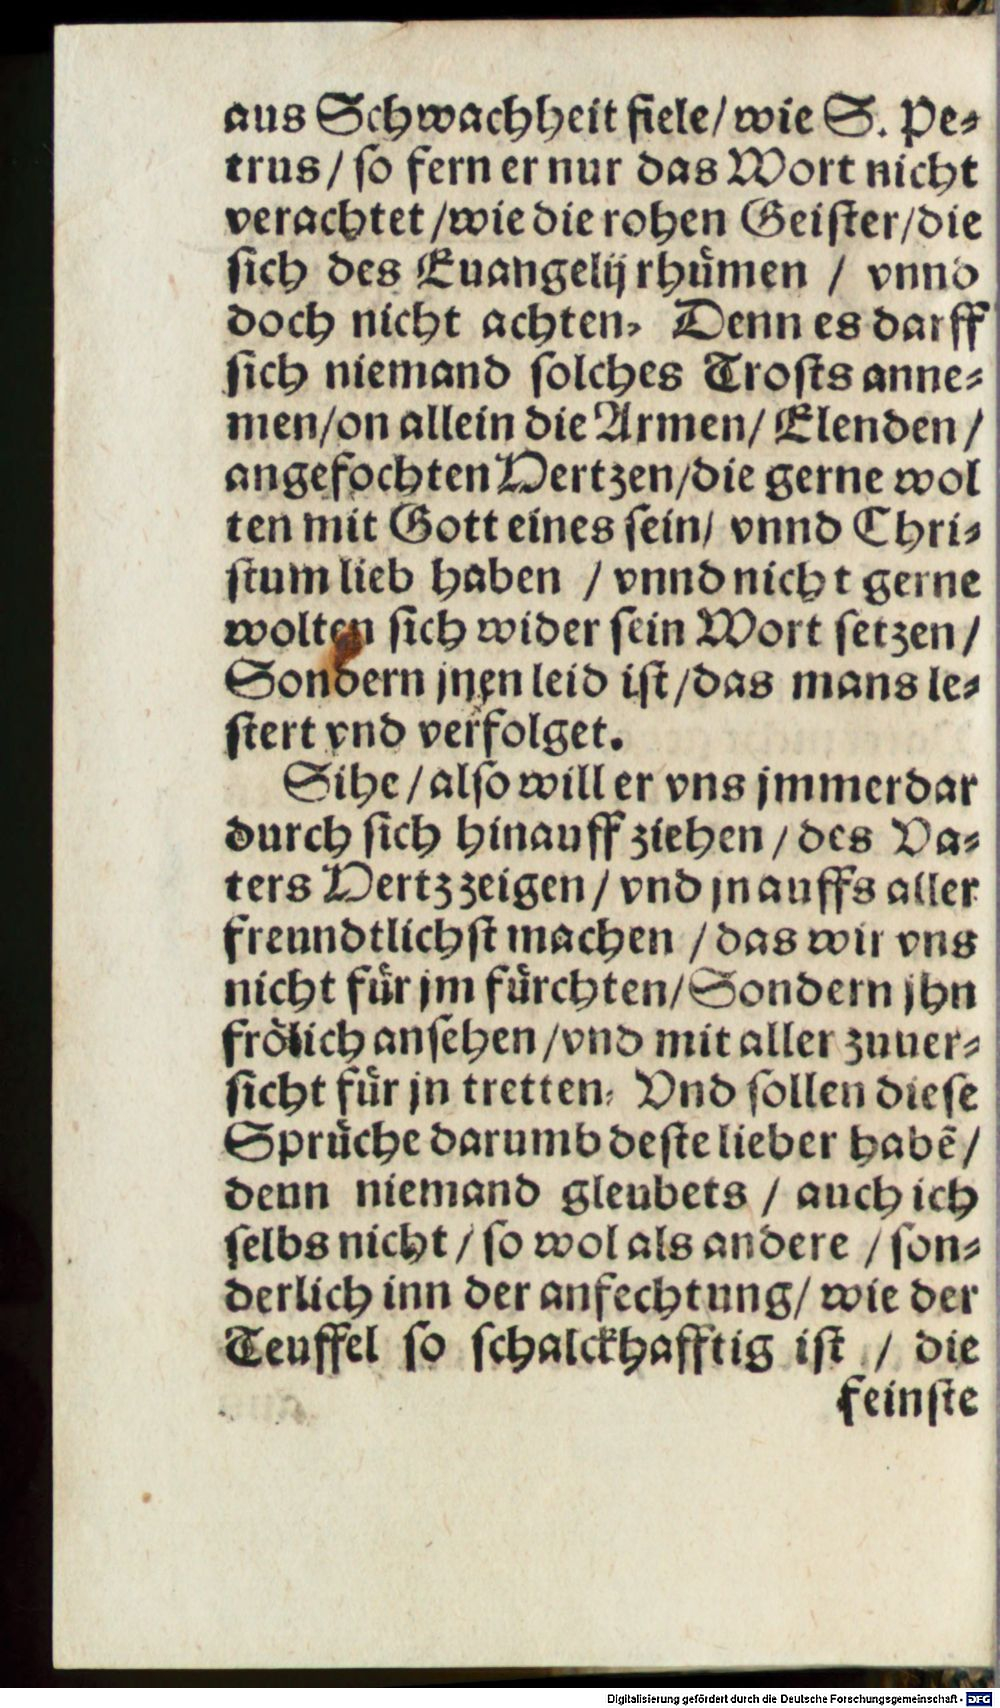 aus Schwachheit fiele/wie S. Pe⸗
trus/so fern er nur das Wort nicht
verachtet/wie die rohen Geister/die
sich des Euangelij rhuͤmen / vnnd
doch nicht achten. Denn es darff
sich niemand solches Trosts anne⸗
men/on allein die Armen/ Elenden/
angefochten Hertzen/die gerne wol
ten mit Gott eines sein/ vnnd Chri⸗
stum lieb haben / vnnd nicht gerne
wolten sich wider sein Wort setzen/
Sondern jnen leid ist/das mans le⸗
stert vnd verfolget.
Sihe/also will er vns jmmerdar
durch sich hinauff ziehen/des Va⸗
ters Hertz zeigen/ vnd jn auffs aller
freundtlichst machen /das wir vns
nicht fuͤr jm fuͤrchten/Sondern jhn
froͤlich ansehen/vnd mit aller zuuer⸗
sicht fuͤr jn tretten. Vnd sollen diese
Spruͤche darumb deste lieber habẽ/
denn niemand gleubets / auch ich
selbs nicht/so wol als andere /son⸗
derlich inn der anfechtung/ wie der
Teuffel so schalckhafftig ist / die
feinste
Digitalisierung gefördert durch die Deutsche Forschungsgemeinschaft - DFG